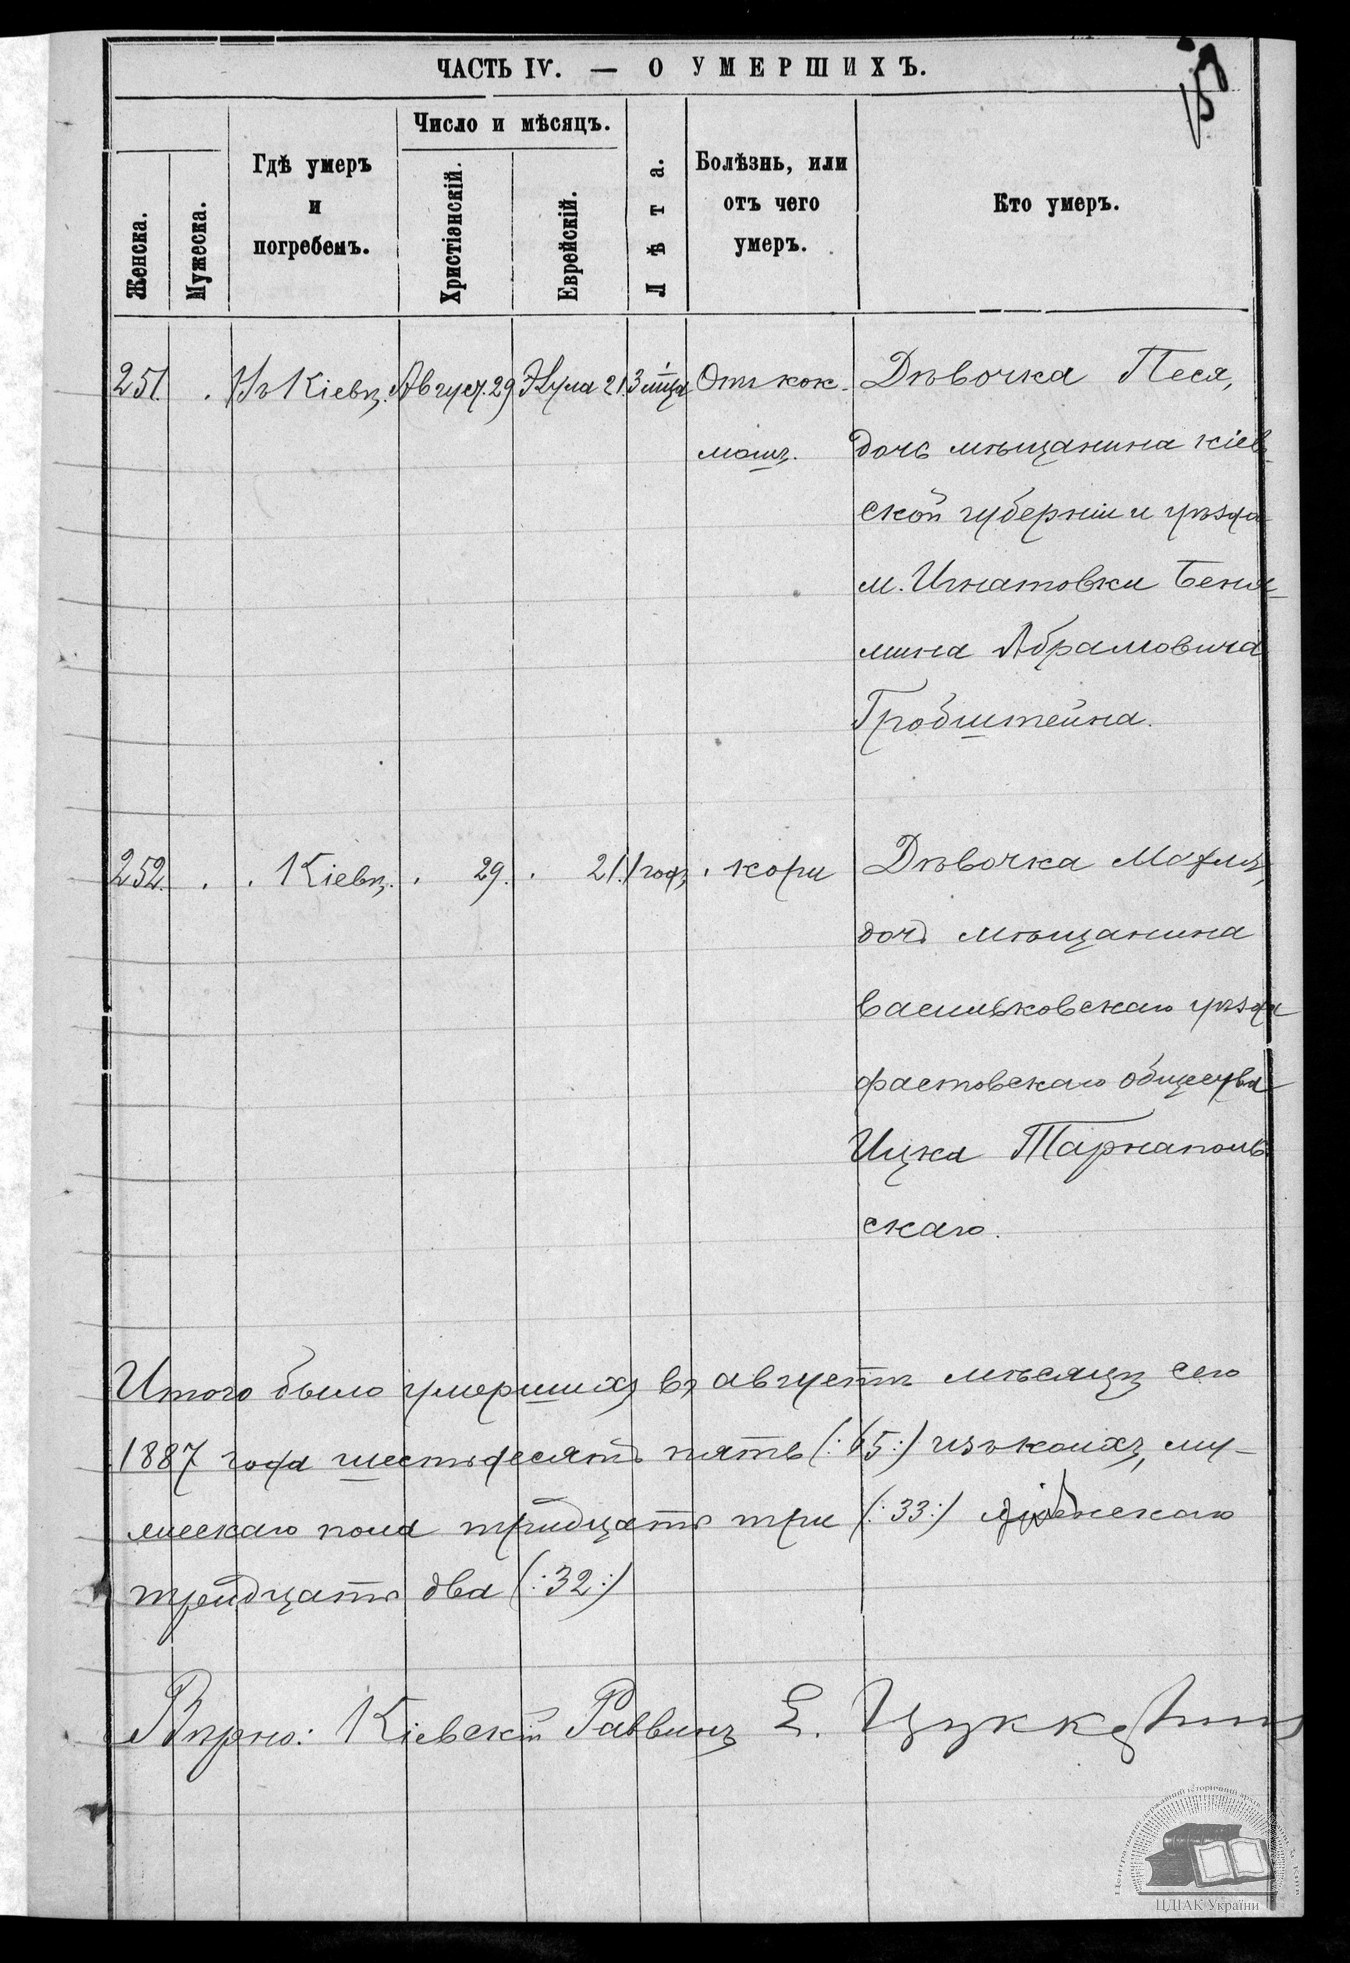 ЧАСТЬ IV. — О УМЕРШИХЪ.
Женска.
Мужеска.
Гдѣ умеръ
и
погребенъ.
Число и мѣсяцъ.
Христіянскій.
Еврейскій.
Лѣта.
Болѣзнь, или
отъ чего
умеръ.
Кто умеръ.
251. Въ Кіевѣ. Август. 29 Элула 21. 3 мца Отъ кок- Дѣвочка Песя,
люш. дочь мѣщанина кіев-
ской губерніи и уѣзда
м. Игнатовки Беня-
мина Абрамовича
Гробштейна.
252. Кіевѣ. 29. 21. 1 годъ кори Дѣвочка
дочь мѣщанина
васильковскаго уѣзда
фастовскаго общества
Ицка Тарнаполь-
скаго.
Итого было умершихъ въ августѣ мѣсяцѣ сего
1887 года шестьдесятъ пять (:65:) изъ коихъ, му-
жескаго пола тридцать три (:33:) женскаго
тридцать два (:32:)
Вѣрно: Кіевскій Раввинъ Е. Цуккерманъ
ЦДІАК України